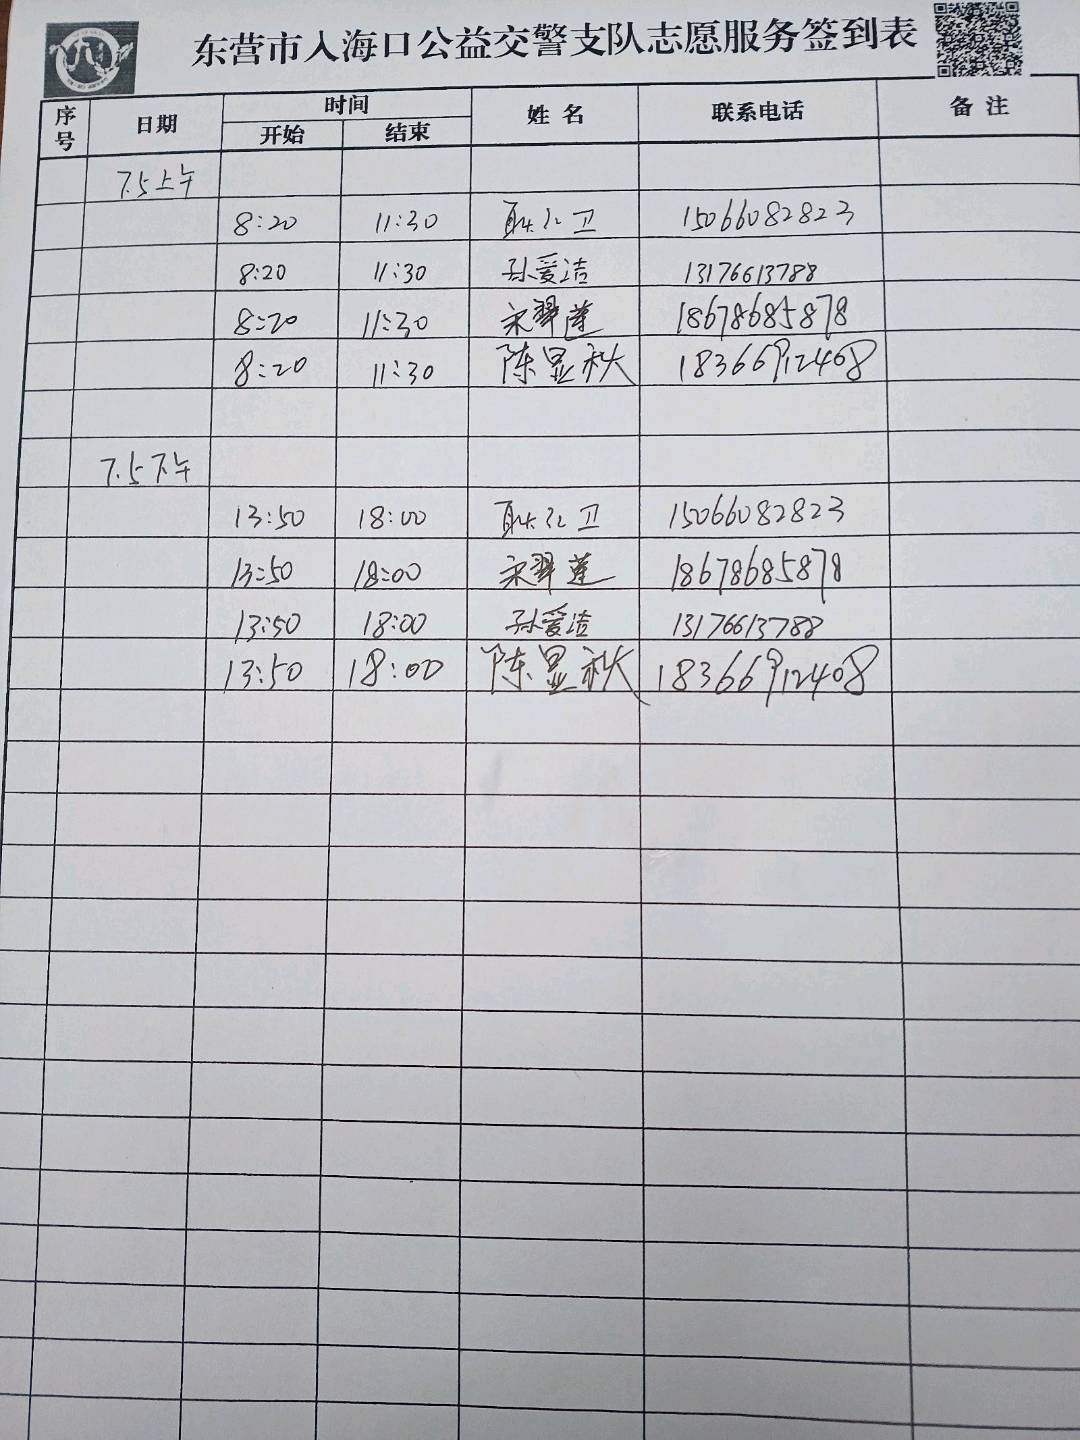 东营市入海口公益交警支队志愿服务签到表
序号 日期 时间 姓名 联系电话 备注
开始 结束
7.5上午
8:20 11:30 耿红卫 15066082823
8:20 11:30 孙爱洁 13176613788
8:20 11:30 宋翠莲 18678685878
8:20 11:30 陈显秋 18366912408
7.5下午
13:50 18:00 耿红卫 15066082823
13:50 18:00 宋翠莲 18678685878
13:50 18:00 孙爱洁 13176613788
13:50 18:00 陈显秋 18366912408